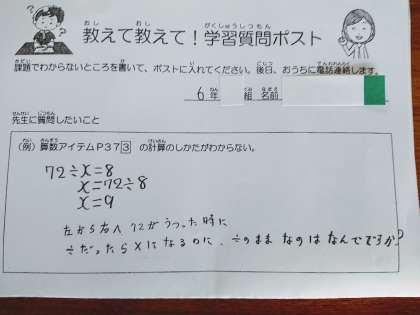 教えて教えて！学習質問ポスト
課題でわからないところを書いて、ポストに入れてください。後日、おうちに電話連絡します。
6年 組 名前
先生に質問したいこと
(例) 算数アイテムP37③ の計算のしかたがわからない。
72÷x=8
x=72÷8
x=9
左から右へ72がうつった時に
÷だったら×になるのに、÷のままなのはなんでですか？